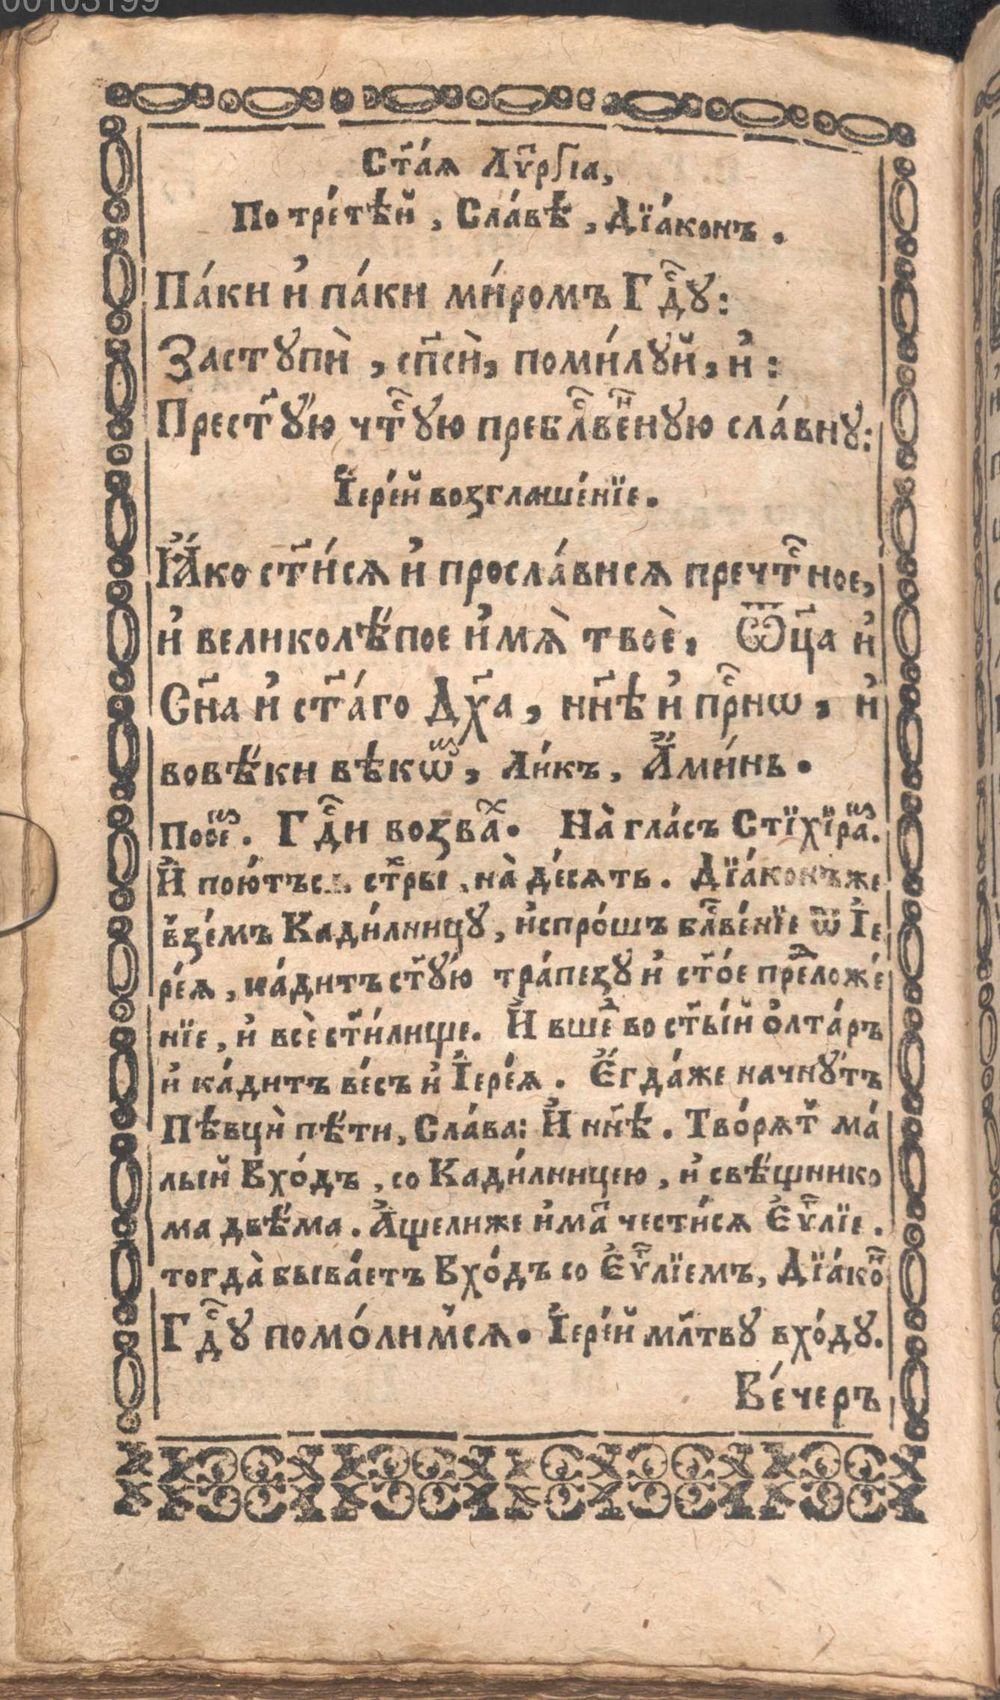 00103199
Ст҃а́ѧ Лѵ҃ргіа,
По тре́тѣй , Сла́вѣ , Дїа́конъ .
Па́ки и҆ па́ки ми́ромъ Гдⷭ҇у:
Заступѝ , сп҃сѝ, поми́луй, и҆ :
Прест҃у́ю чтⷭ҇ую преблⷭ҇ве́нⷩ҇ую сла́вну:
І҆ере́й возглаше́нїе .
Ꙗ҆́ко ст҃и́сѧ и҆ просла́висѧ пречтⷭ҇ное,
и҆ великолѣ́пое и҆мѧ̀ твоѐ, Ѿц҃а и҆
Сн҃а и҆ ст҃а́го Дх҃а , нн҃ѣ и҆ прⷭ҇нѡ , и҆
вовѣ́ки вѣкѡⷡ҇, Ли́къ, А҆ми́нь .
Гдⷭ҇и возваⷯ . На̀ гла́съ Стїхїраⷨ.
И҆ пою́тъсѧ стⷯры на̀ де́сѧть . Дїа́конъже
взе́мъ Кади́лницу , и҆спро́шъ блⷭ҇ве́нїе ѿ І҆е
ре́ѧ , ка́дитъ ст҃у́ю тра́пезу и҆ ст҃о́е преⷣложе́
нїе , и҆ всѐ ст҃и́лище . И҆ вшеⷣ во ст҃ы́й о҆лта́ръ
и҆ ка́дитъ ве́съ и҆ І҆ере́ѧ . Е҆гда́же начну́тъ
Пѣвцѝ пѣ́ти, Сла́ва: И҆ нн҃ѣ . Тво́рѧт҃ ма́
лый Вхо́дъ , со Кади́лницею , и҆ свѣ́щнико
ма двѣ́ма . А҆щелиже и҆маⷭ҇ чести́сѧ Е҆ѵⷢ҇лїе .
тогда̀ быва́етъ Вхо́дъ со Е҆ѵⷢ҇лїемъ, Дїа́коⷩ҇
Гдⷭ҇у помо́лимсѧ . І҆ере́й мл҃тву вхо́ду .
Ве́черъ